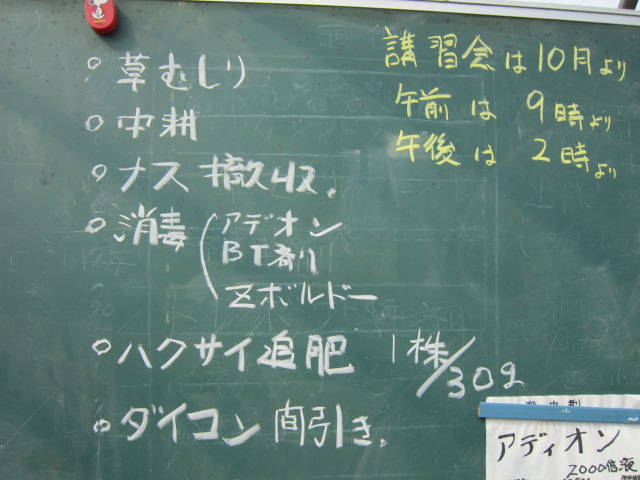 講習会は10月より
午前は 9時より
午後は 2時より
○ 草むしり
○ 中耕
○ ナス撤収.
○ 消毒 (アデオン
BT剤
Zボルドー
○ ハクサイ追肥 1株/30g
○ ダイコン間引き.
アディオン
2000倍液